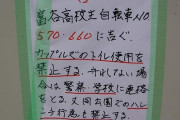 富谷高校生自転車NO
570・660に告ぐ.
カップルでのトイレ使用を
禁止する。守れない場
合は警察・学校に連絡
をとる。又同公園でのハレ
ンチ行為も禁止する。